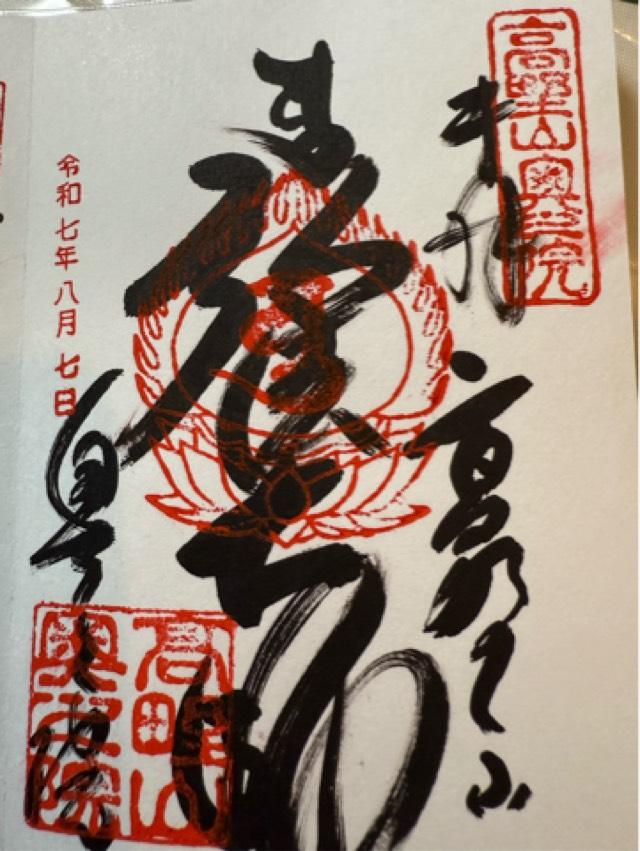 高野山奥之院
奉拝
高野山
大師
令和七年八月七日
奥之院
高野山
奥之院